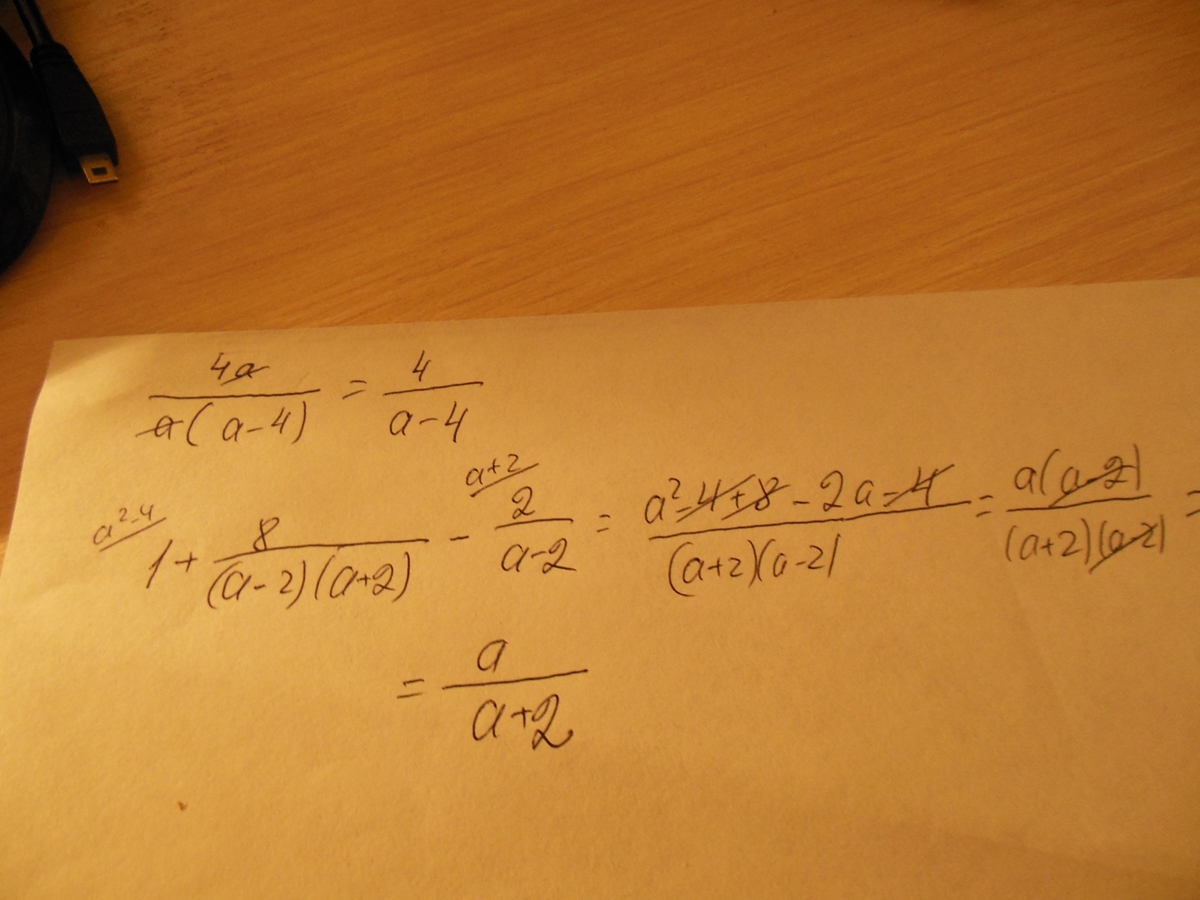 4a/a(a-4) = 4/a-4
a²-4/ 1 + 8/(a-2)(a+2) - a+2/ 2/a-2 = a²-4+8-2a-4/(a+2)(a-2) = a(a-2)/(a+2)(a-2) =
= a/a+2